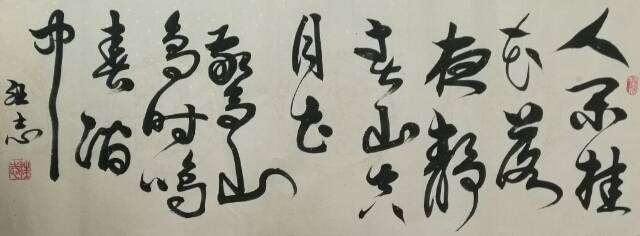 人闲桂
花落
夜静
春山空
月出
惊山
鸟时鸣
春涧
中
志